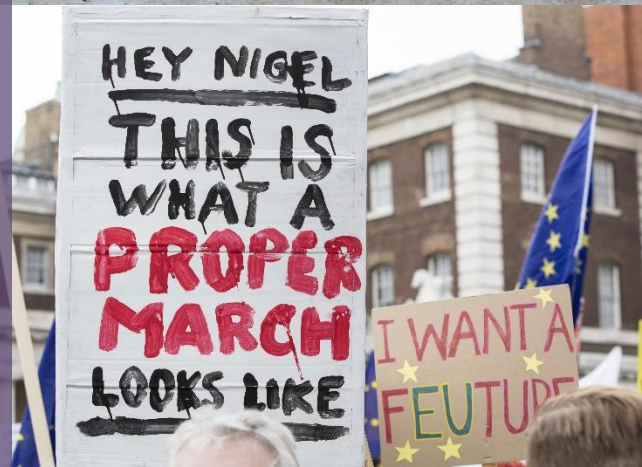 HEY NIGEL
THIS IS
WHAT A
PROPER
MARCH
LOOKS LIKE
I WANT A
FEUTURE